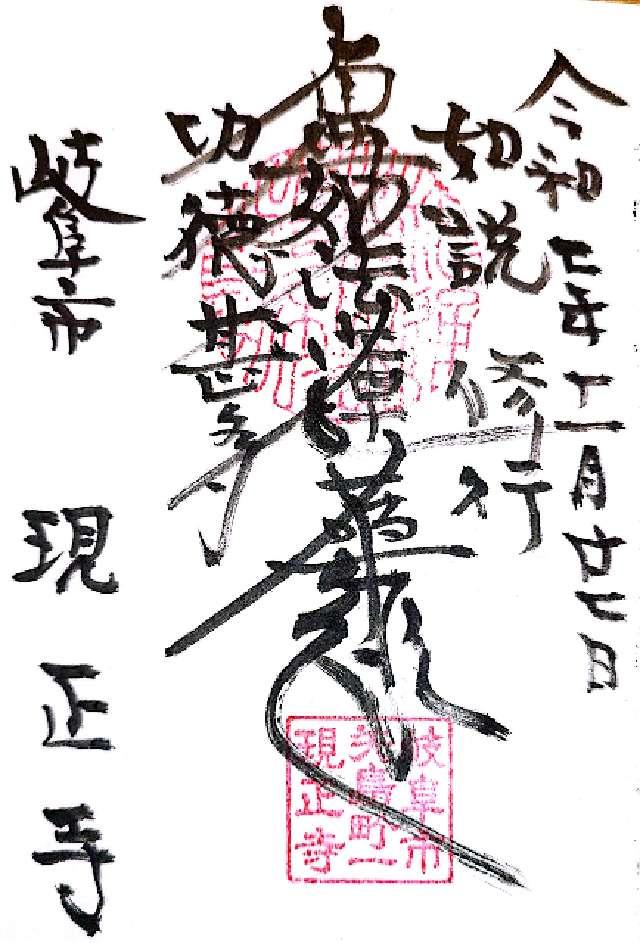 令和七年十一月廿七日
如説修行
南無妙法蓮華経
功徳甚多
岐阜市 現正寺
岐阜市
町一
現正寺